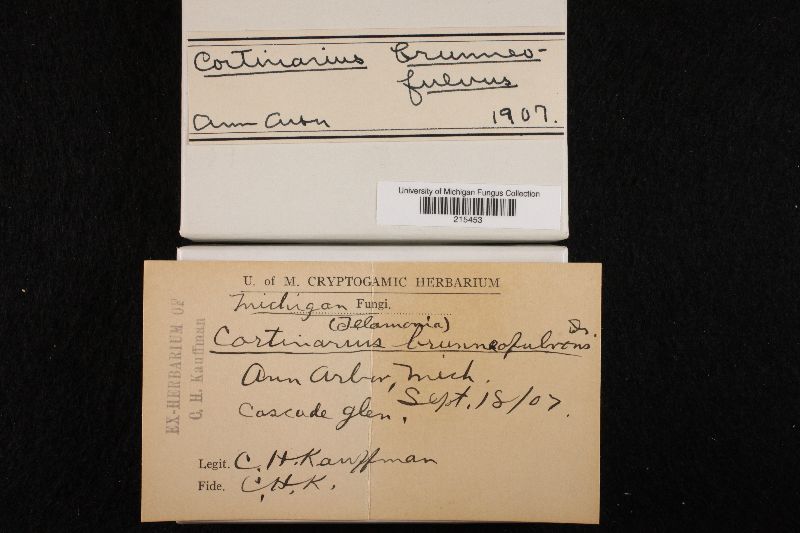 Cortinarius brunneo-
fulvus
Ann Arbor 1907.
University of Michigan Fungus Collection
215453
U. of M. CRYPTOGAMIC HERBARIUM
Michigan Fungi.
(Telamonia)
Cortinarius brunneofulvus Fr.
Ann Arbor, Mich.
Cascade glen. Sept. 18/07.
Legit. C. H. Kauffman
Fide. C. H. K.
EX-HERBARIUM OF
C. H. Kauffman